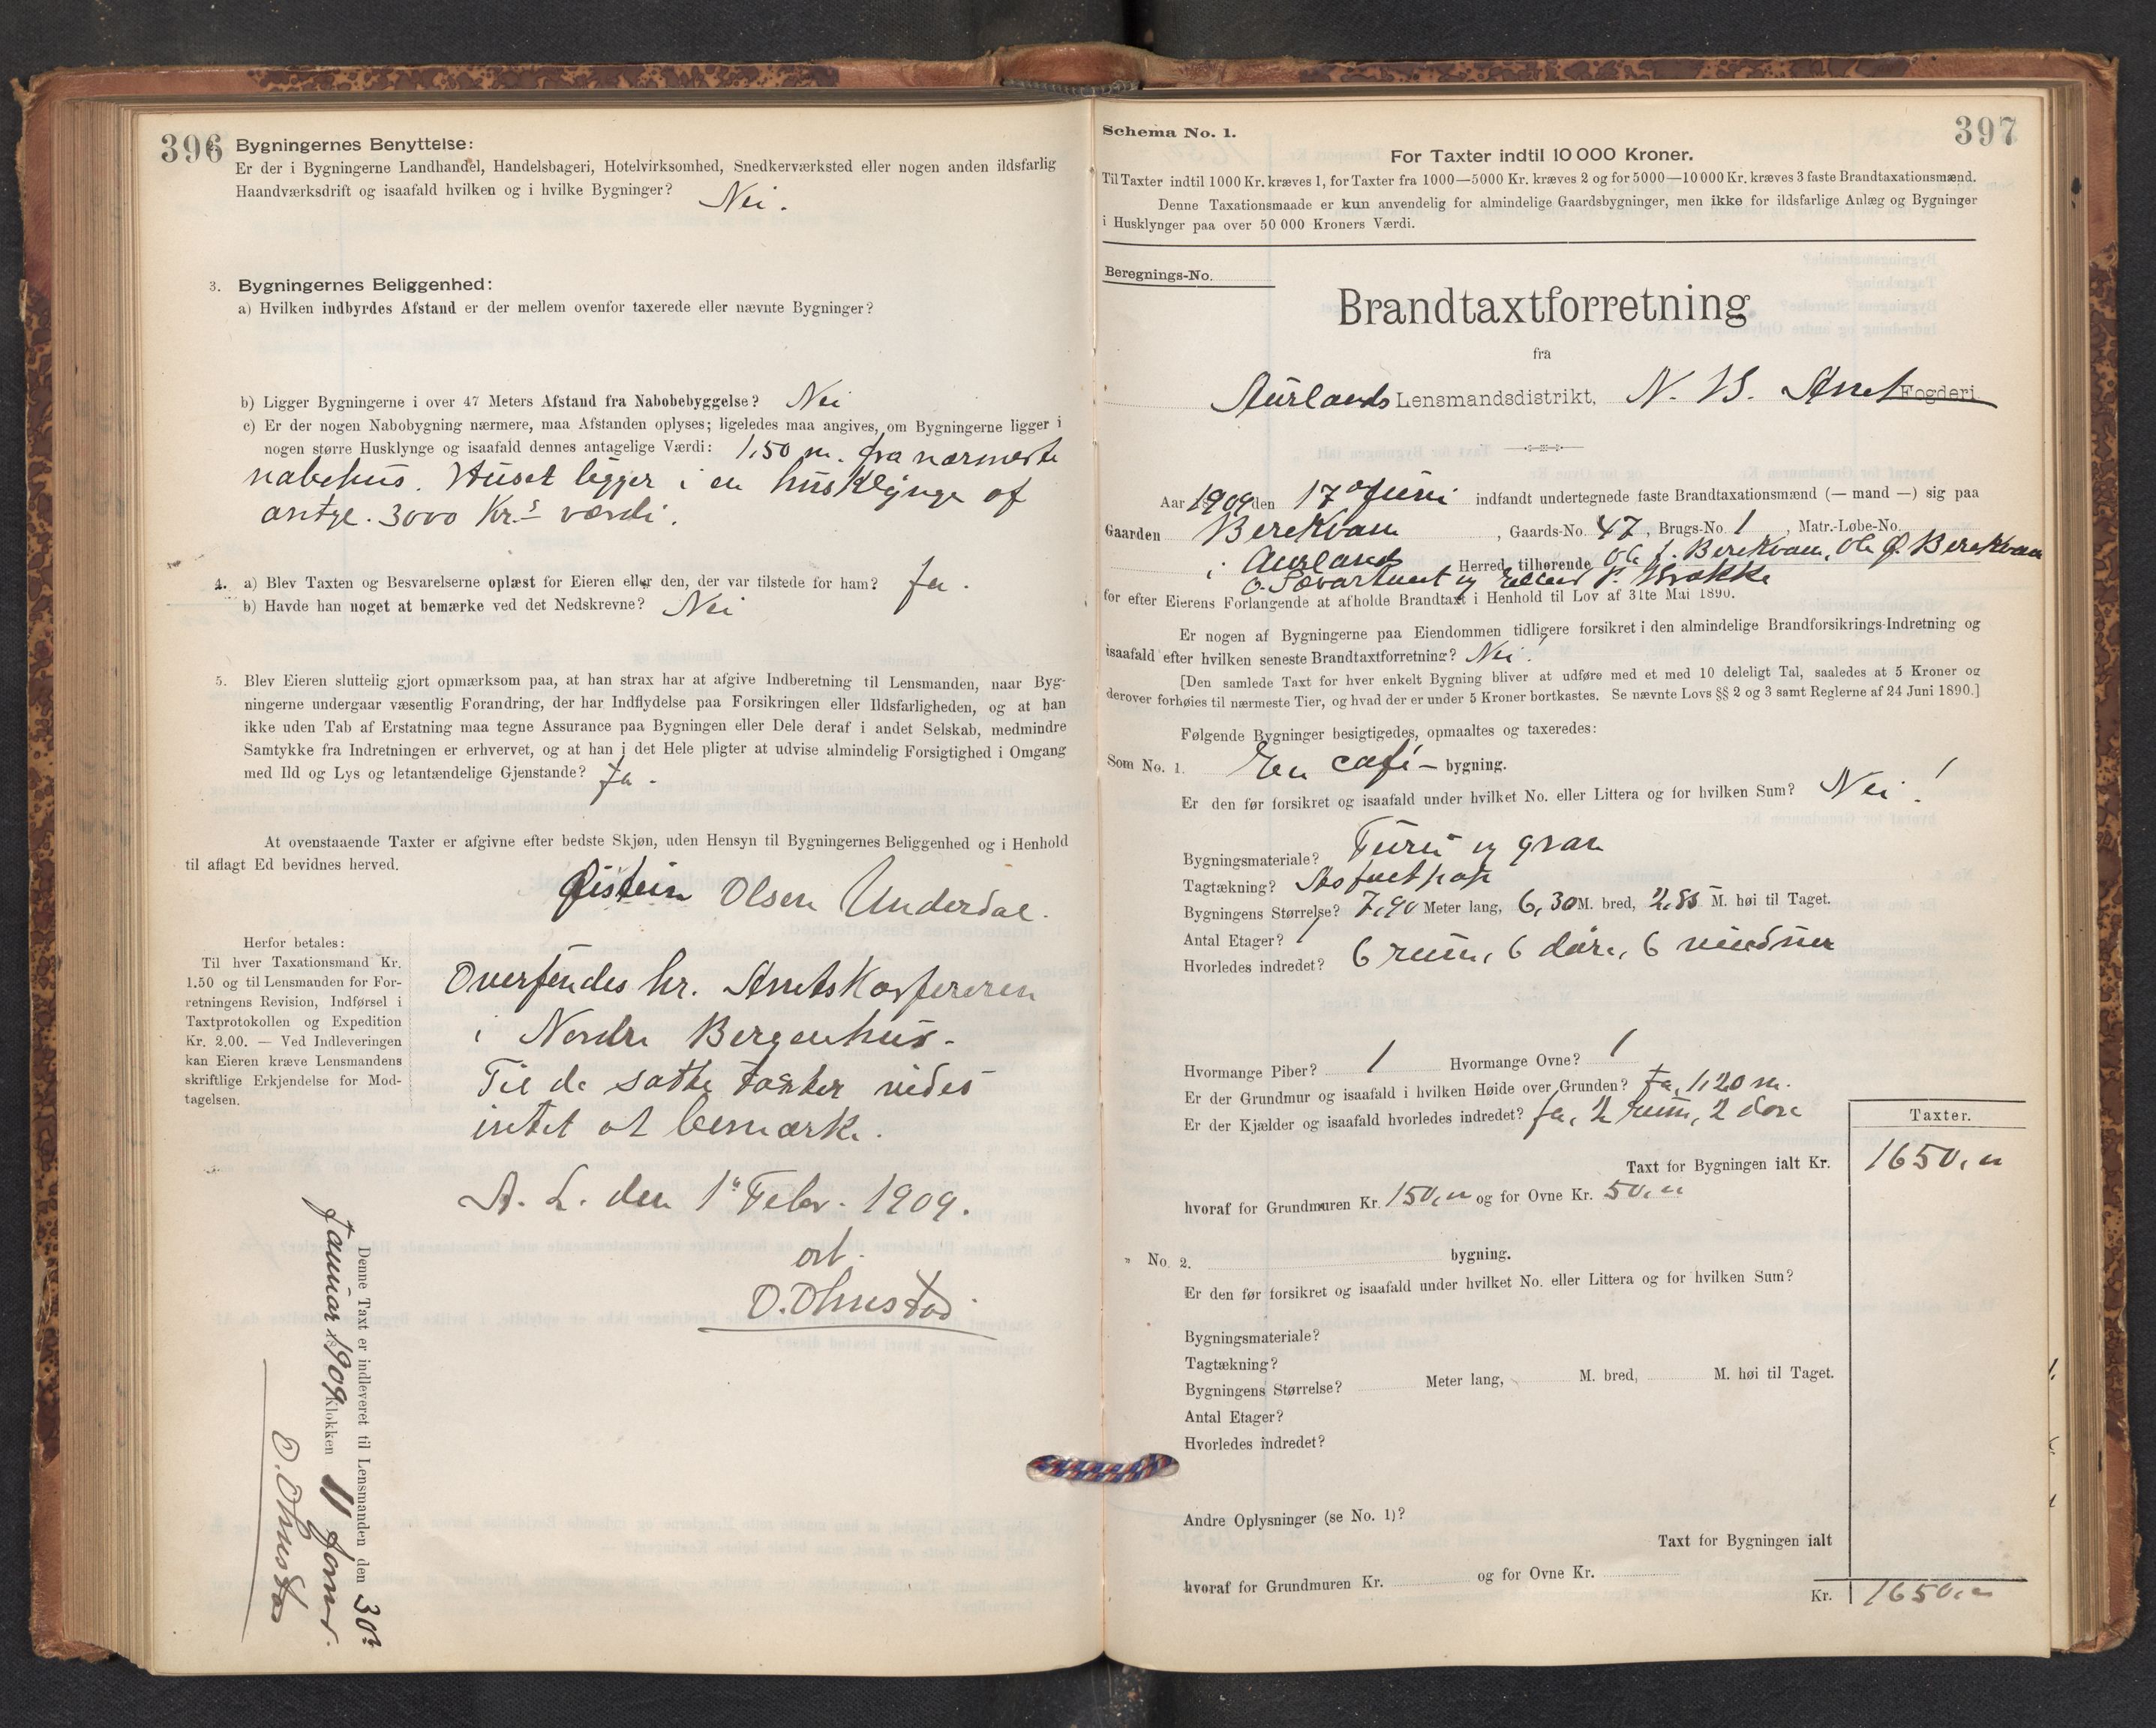 396
Bygningernes Benyttelse:
Er der i Bygningerne Landhandel, Handelsbageri, Hotelvirksomhed, Snedkerværksted eller nogen anden ildsfarlig
Haandværksdrift og isaafald hvilken og i hvilke Bygninger? Nei.
3. Bygningernes Beliggenhed:
a) Hvilken indbyrdes Afstand er der mellem ovenfor taxerede eller nævnte Bygninger?
b) Ligger Bygningerne i over 47 Meters Afstand fra Nabobebyggelse? Nei
c) Er der nogen Nabobygning nærmere, maa Afstanden oplyses; ligeledes maa angives, om Bygningerne ligger i
nogen større Husklynge og isaafald dennes antagelige Værdi: 1,50 m. fra nærmeste
nabohus. Huset ligger i en husklynge af
antgl. 3000 Kr.s værdi.
4. a) Blev Taxten og Besvarelserne oplæst for Eieren eller den, der var tilstede for ham? Ja.
b) Havde han noget at bemærke ved det Nedskrevne? Nei
5. Blev Eieren sluttelig gjort opmærksom paa, at han strax har at afgive Indberetning til Lensmanden, naar Byg-
ningerne undergaar væsentlig Forandring, der har Indflydelse paa Forsikringen eller Ildsfarligheden, og at han
ikke uden Tab af Erstatning maa tegne Assurance paa Bygningen eller Dele deraf i andet Selskab, medmindre
Samtykke fra Indretningen er erhvervet, og at han i det Hele pligter at udvise almindelig Forsigtighed i Omgang
med Ild og Lys og letantændelige Gjenstande? Ja.
At ovenstaaende Taxter er afgivne efter bedste Skjøn, uden Hensyn til Bygningernes Beliggenhed og i Henhold
til aflagt Ed bevidnes herved.
Øistein Olsen Underdal.
Herfor betales:
Til hver Taxationsmand Kr.
1.50 og til Lensmanden for For-
retningens Revision, Indførsel i
Taxtprotokollen og Expedition
Kr. 2.00. — Ved Indleveringen
kan Eieren kræve Lensmandens
skriftlige Erkjendelse for Mod-
tagelsen.
Oversendes hr. Amtskasereren
i Nordre Bergenhus.
Til de satte taxter vides
intet at bemærke.
A. L. den 1' Febr. 1909.
O. Ohnstad
Denne Taxt er indleveret til Lensmanden den 30'
Januar 1909 Klokken 11 form.
O. Ohnstad
397
Schema No. 1.
For Taxter indtil 10 000 Kroner.
Til Taxter indtil 1000 Kr. kræves 1, for Taxter fra 1000—5000 Kr. kræves 2 og for 5000—10 000 Kr. kræves 3 faste Brandtaxationsmænd.
Denne Taxationsmaade er kun anvendelig for almindelige Gaardsbygninger, men ikke for ildsfarlige Anlæg og Bygninger
i Husklynger paa over 50 000 Kroners Værdi.
Beregnings-No.
Brandtaxtforretning
fra
Aurlands Lensmandsdistrikt, N. B. Amt Fogderi
Aar 1909 den 17' Juni indfandt undertegnede faste Brandtaxationsmænd (— mand —) sig paa
Gaarden Berekvam, Gaards-No. 47, Brugs-No. 1, Matr.-Løbe-No.
i Aurland Herred, tilhørende Ole J. Berekvam, Ole Ø. Berekvam
og P. Brække
for efter Eierens Forlangende at afholde Brandtaxt i Henhold til Lov af 31te Mai 1890.
Er nogen af Bygningerne paa Eiendommen tidligere forsikret i den almindelige Brandforsikrings-Indretning og
isaafald efter hvilken seneste Brandtaxtforretning? Nei.
[Den samlede Taxt for hver enkelt Bygning bliver at udføre med et med 10 deleligt Tal, saaledes at 5 Kroner og
derover forhøies til nærmeste Tier, og hvad der er under 5 Kroner bortkastes. Se nævnte Lovs §§ 2 og 3 samt Reglerne af 24 Juni 1890.]
Følgende Bygninger besigtigedes, opmaaltes og taxeredes:
Som No. 1. En café-bygning.
Er den før forsikret og isaafald under hvilket No. eller Littera og for hvilken Sum? Nei!
Bygningsmateriale? Furu og gran
Tagtækning? Asfaltpap
Bygningens Størrelse? 7,90 Meter lang, 6,30 M. bred, 2,85 M. høi til Taget.
Antal Etager? 1
Hvorledes indredet? 6 rum, 6 døre, 6 vinduer
Hvormange Piber? 1 Hvormange Ovne? 1
Er der Grundmur og isaafald i hvilken Høide over Grunden? Ja, 1,20 m.
Er der Kjælder og isaafald hvorledes indredet? Ja, 2 rum, 2 døre
Taxter.
Taxt for Bygningen ialt Kr. 1650,"
hvoraf for Grundmuren Kr. 150," og for Ovne Kr. 50,"
" No. 2. bygning.
Er den før forsikret og isaafald under hvilket No. eller Littera og for hvilken Sum?
Bygningsmateriale?
Tagtækning?
Bygningens Størrelse? Meter lang, M. bred, M. høi til Taget.
Antal Etager?
Hvorledes indredet?
Andre Oplysninger (se No. 1)?
Taxt for Bygningen ialt
hvoraf for Grundmuren Kr. og for Ovne Kr.
Kr. 1650,"